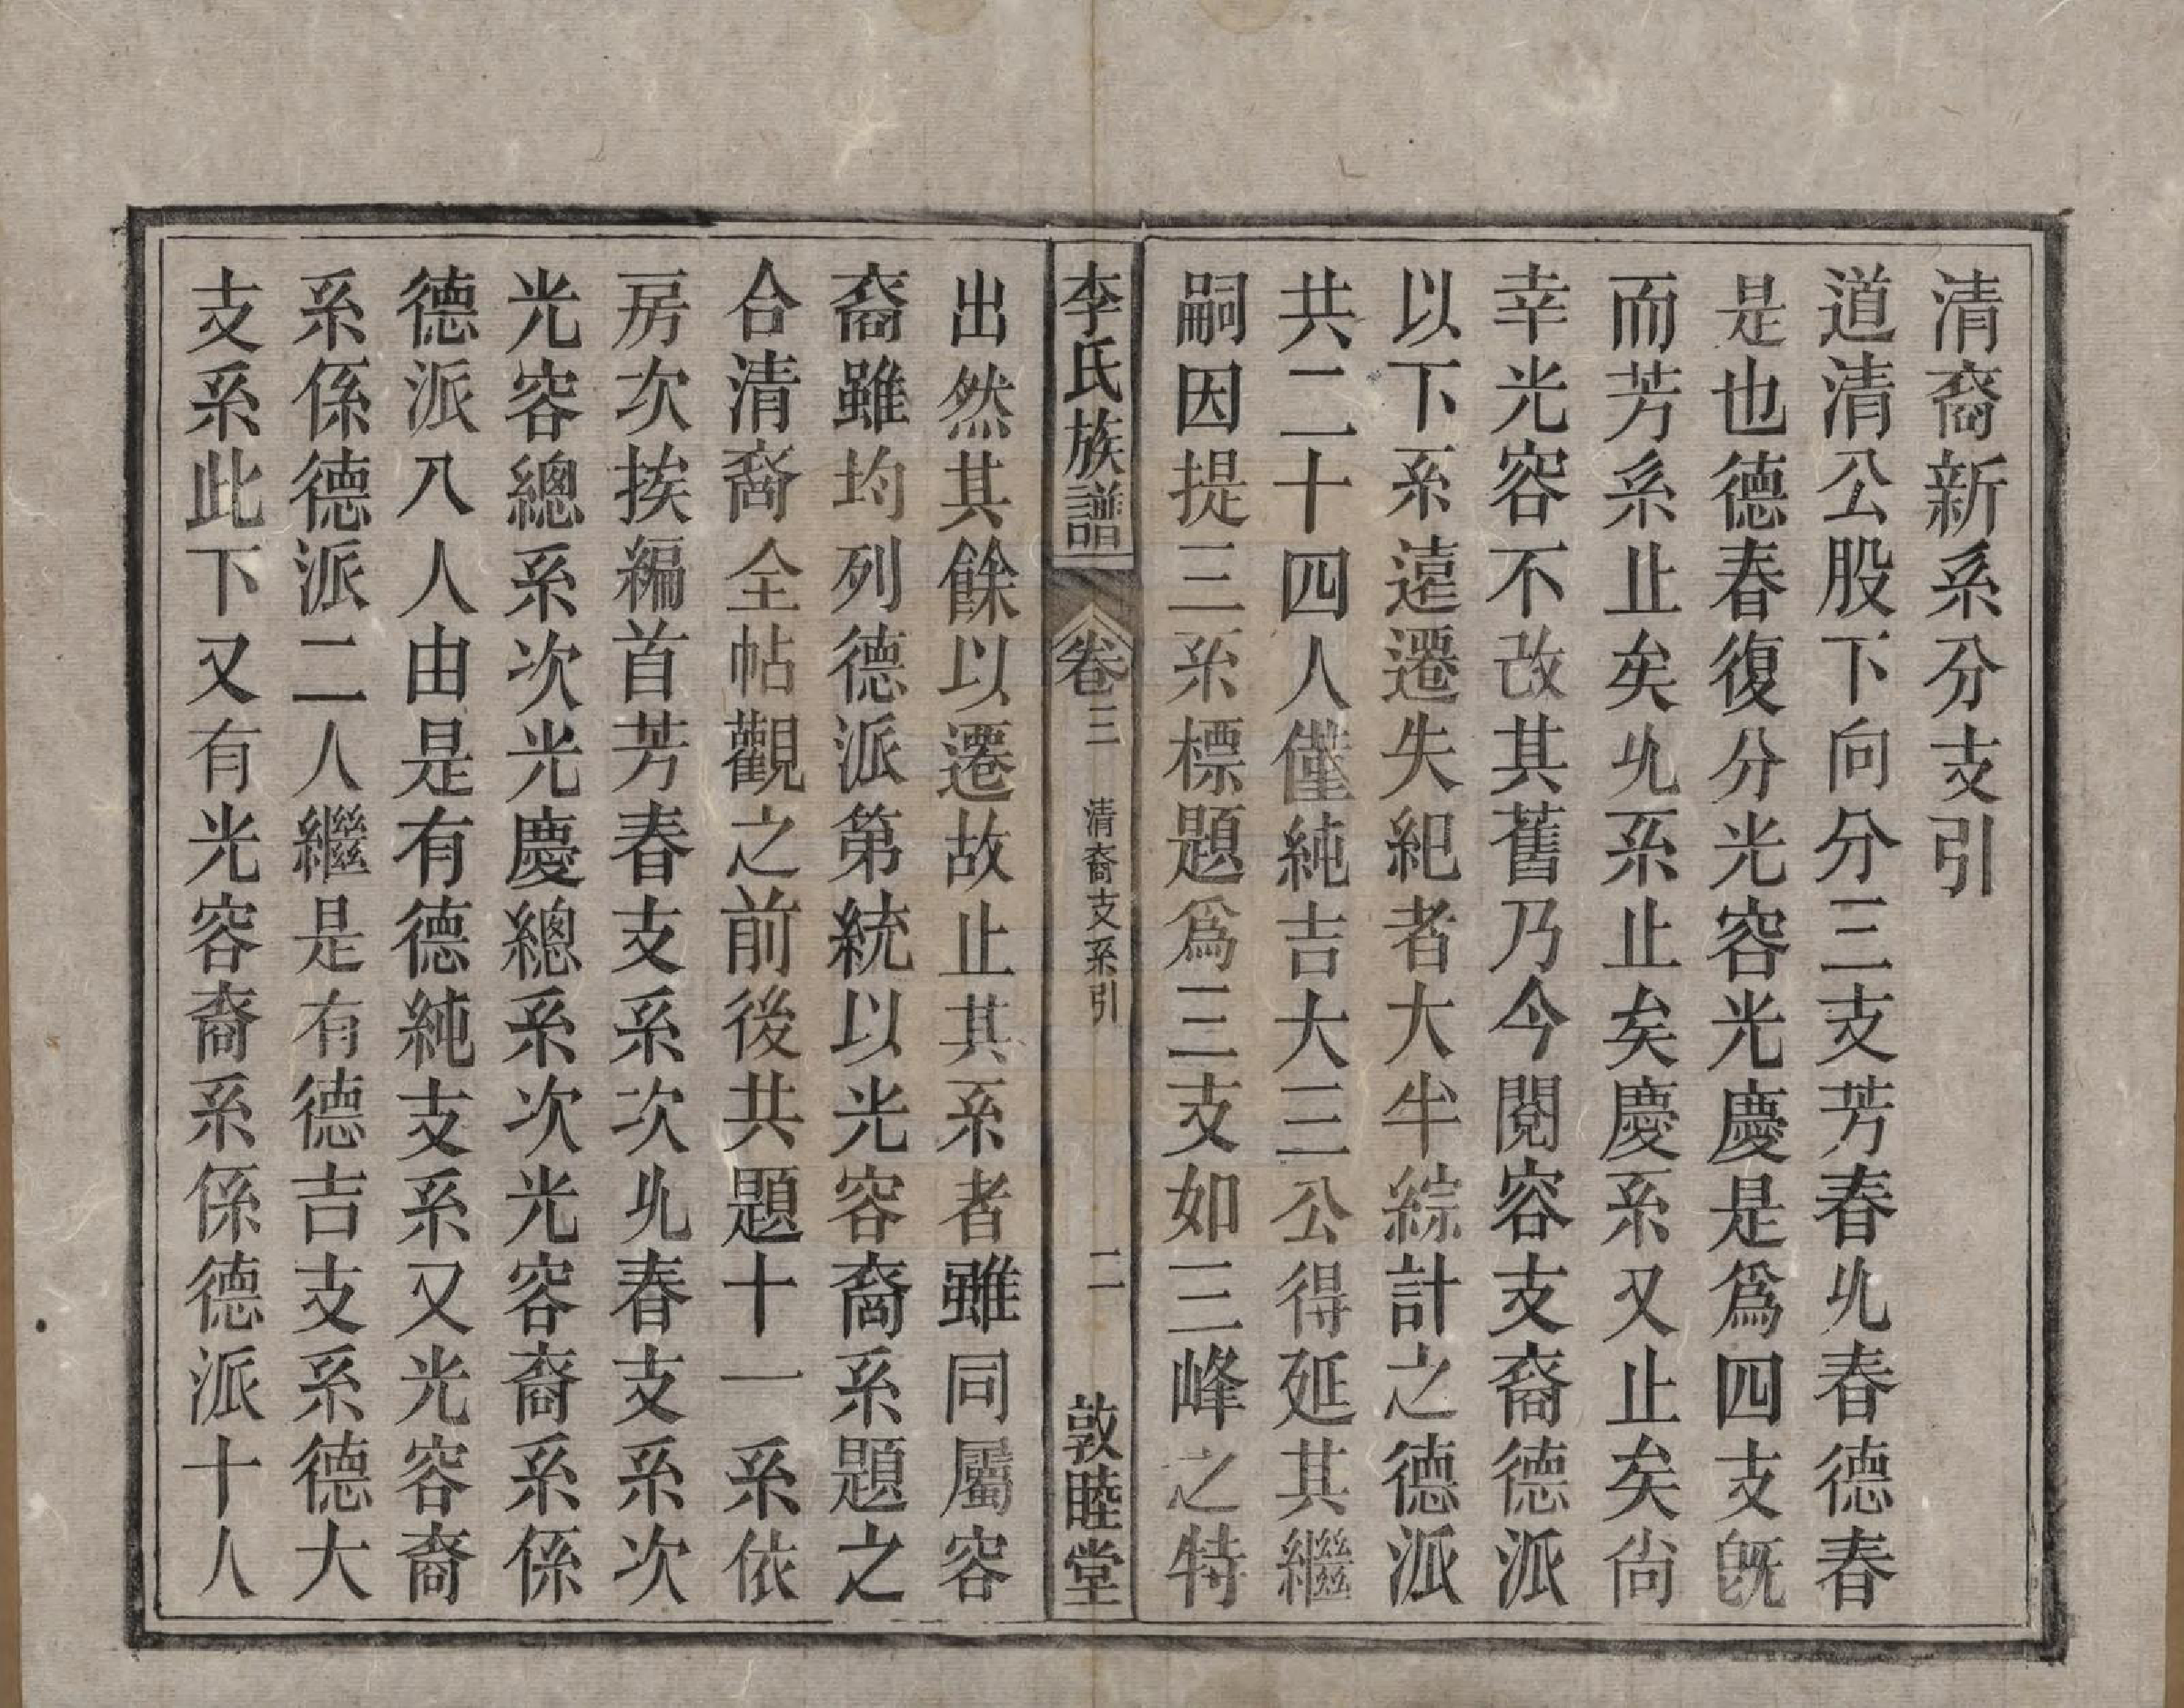 清裔新系分支引
道清公股下向分三支芳春𠀌春德春
是也德春復分光容光慶是爲四支旣
而芳系止矣𠀌系止矣慶系又止矣尙
幸光容不改其舊乃今閱容支裔德派
以下系遠遷失紀者大半綜計之德派
共二十四人僅純吉大三公得延其繼
嗣因提三系標題爲三支如三峰之特
李氏族譜 卷三 清裔支系引 二 敦睦堂
出然其餘以遷故止其系者雖同屬容
裔雖均列德派第統以光容裔系題之
合清裔全帖觀之前後共題十一系依
房次挨編首芳春支系次𠀌春支系次
光容總系次光慶總系次光容裔系係
德派八人由是有德純支系又光容裔
系係德派二人繼是有德吉支系德大
支系此下又有光容裔系係德派十人